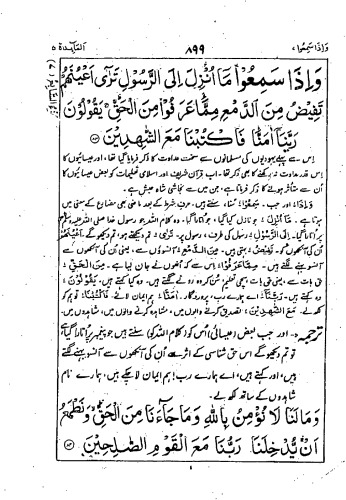 وَاِذَا سَمِعُوْا ۷
۸۹۹
المَآئِدَة ۵
وَاِذَا سَمِعُوْا مَآ اُنْزِلَ اِلَى الرَّسُوْلِ تَرٰٓى اَعْيُنَهُمْ
تَفِيْضُ مِنَ الدَّمْعِ مِمَّا عَرَفُوْا مِنَ الْحَقِّ ۚ يَقُوْلُوْنَ
رَبَّنَآ اٰمَنَّا فَاكْتُبْنَا مَعَ الشّٰهِدِيْنَ
اِس سے پہلے یہودیوں کی مسلمانوں سے سخت عداوت کا ذکر فرمایا گیا تھا، اور عیسائیوں کا
اس قدر عداوت نہ رکھنے کا بھی ذکر تھا، اب قرآن شریف اور اسلامی تعلیمات کو بعض عیسائیوں کا
اُن سے متاثر ہونے کا ذکر فرمایا ہے، جن میں سے نجاشی شاہ حبش ہے۔
وَاِذَا، اور جب۔ سَمِعُوْا، سنتے ہیں۔ حرف شرط کے بعد ماضی بھی مضارع کے معنی میں
ہوتا ہے۔ مَآ اُنْزِلَ، جو نازل کیا گیا، جو اُتارا گیا، وہ کلام اللہ جو رسول خدا صلی اللہ علیہ وسلم
پر اُتارا گیا۔ اِلَى الرَّسُوْلِ، رسول کی طرف، رسول پر۔ تَرٰى، تم دیکھتے ہو، تم دیکھو گے۔ اَعْيُنَهُمْ
اُن کی آنکھوں کو۔ تَفِيْضُ، بہتی ہیں۔ مِنَ الدَّمْعِ، آنسوؤں سے، یعنی اُن کی آنکھوں سے
آنسو بہنے لگتے ہیں۔ مِمَّا عَرَفُوْا، اس سے کہ اُنھوں نے جان لیا ہے۔ مِنَ الْحَقِّ،
حق بات سے، یعنی حق بات سچی تعلیم سن کر وہ رونے لگتے ہیں۔ يَقُوْلُوْنَ
وہ کہتے ہیں۔ رَبَّنَآ، اے ہمارے رب، پروردگار۔ اٰمَنَّا، ہم ایمان لائے۔ فَاكْتُبْنَا، تو ہم کو لکھ
مَعَ الشّٰهِدِيْنَ، تصدیق کرنے والوں کے ساتھ، شہادت دینے والوں کے ساتھ۔
ترجمہ، اور جب بعض (عیسائی) اُس (کو) کلام اللہ کو سنتے ہیں جو پیغمبر پر اُتارا گیا
تو تم دیکھو گے اس حق شناسی کے اثر سے اُن کی آنکھوں سے آنسو بہنے لگتے
ہیں، اور کہتے ہیں، اے ہمارے رب! ہم ایمان لا چکے ہیں، ہمارے نام
شاہدوں کے ساتھ لکھ لے۔
وَمَا لَنَا لَا نُؤْمِنُ بِاللّٰهِ وَمَا جَآءَنَا مِنَ الْحَقِّ ۙ وَنَطْمَعُ
اَنْ يُّدْخِلَنَا رَبُّنَا مَعَ الْقَوْمِ الصّٰلِحِيْنَ